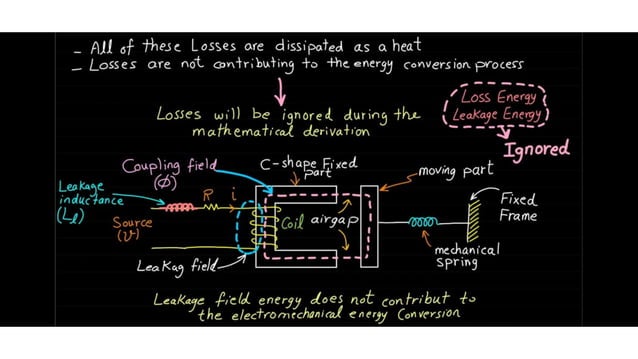 - All of these Losses are dissipated as a heat
- Losses are not contributing to the energy conversion process
Losses will be ignored during the
mathematical derivation
Loss Energy
Leakage Energy
Ignored
Coupling field
(Ø)
C-shape Fixed
part
moving part
Leakage
inductance (Lℓ)
R
i
Fixed
Frame
Source
(v)
Coil
airgap
mechanical
spring
Leakag field
Leakage field energy does not contribut to
the electromechanical energy Conversion